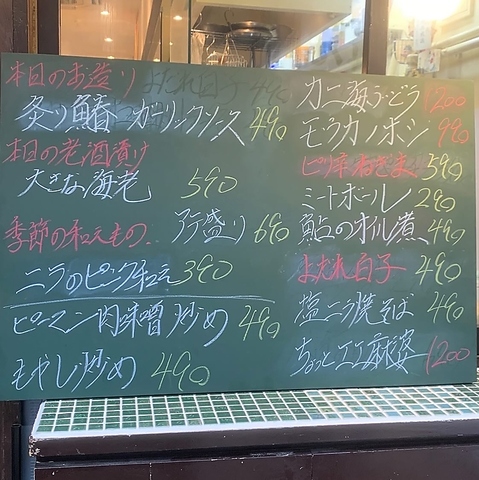 本日のお造り
炙り鰆 ガーリックソース 490
本日の老酒漬け
大きな海老 590
季節の和えもの‥ アテ盛り 690
ニラのピンク和え 390
ピーマン肉味噌炒め 490
もやし炒め 490
カニ海ぶどう 1200
モウカノホシ 990
ピリ辛ねぎま 590
ミートボール 290
鮎のオイル煮 490
よだれ白子 490
塩ニラ焼そば 490
ちょっとエエ麻婆 1200